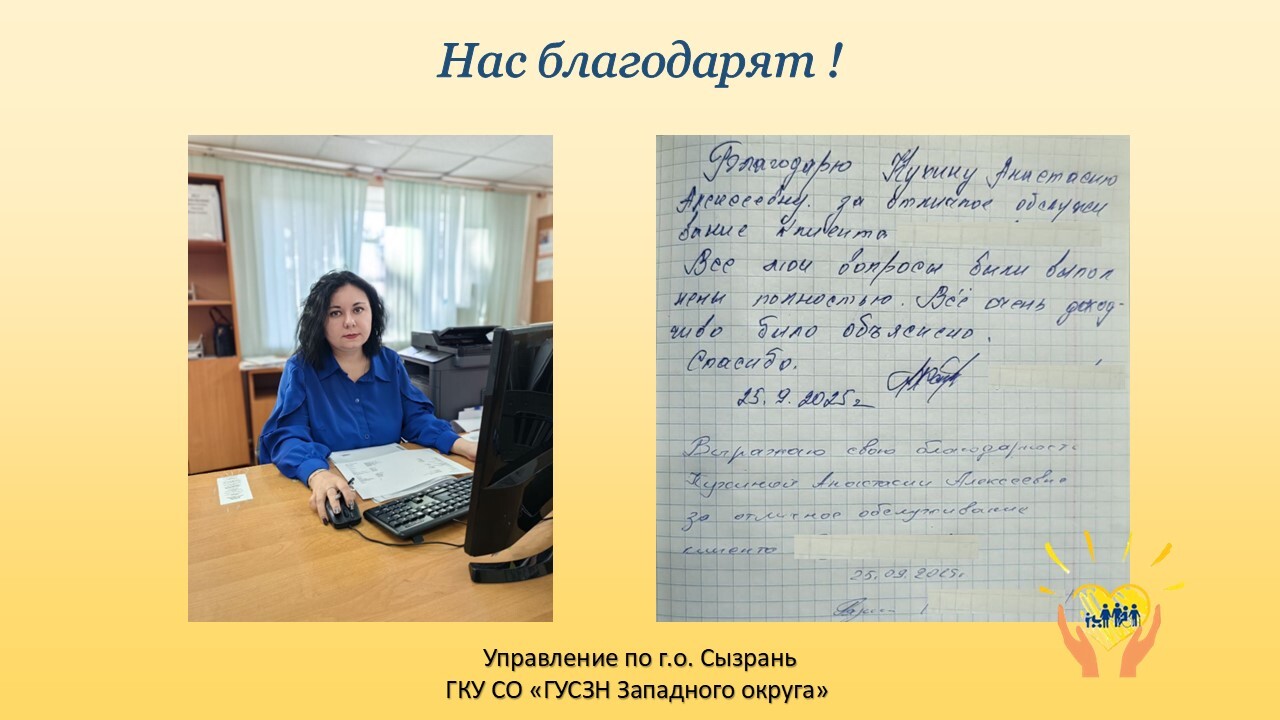 Нас благодарят !
Благодарю Кухину Анастасию
Алексеевну. за отличное обслужи
вание клиента
Все мои вопросы были выпол
нены полностью. Всё очень доход-
чиво было объяснено.
Спасибо.
25.9.2025г
Выражаю свою благодарность
Кухиной Анастасии Алексеевне
за отличное обслуживание
клиента
25.09.2025г
Управление по г.о. Сызрань
ГКУ СО «ГУСЗН Западного округа»